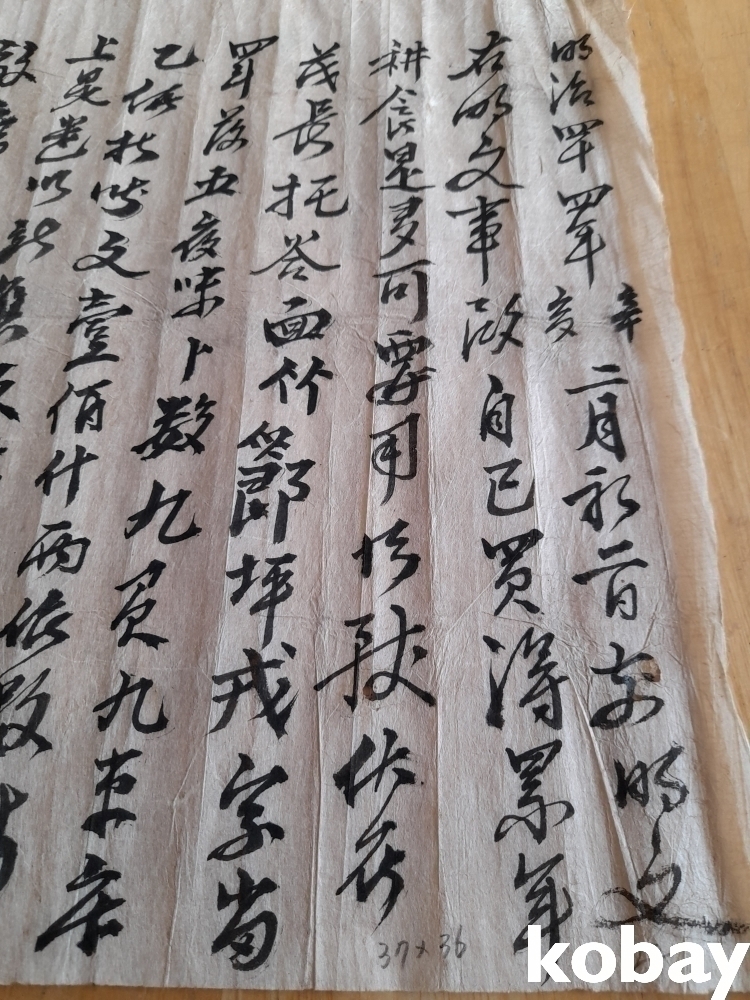 明治四十四年辛亥二月初二日前明文
右明文事段自己買得累年
耕食是多可要用所致伏在
茂長托谷面竹坪戎字畓
四斗落五夜味卜数九負九束庫
乙價折錢文壹佰什兩依数
上是遣以新舊
37x36
kobay